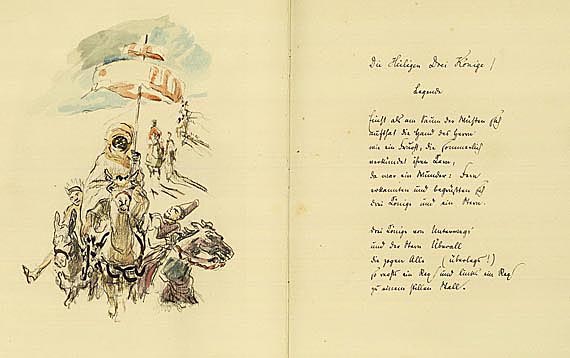 Die Heiligen Drei Könige /
Legende
Einst als am Saum der Wüsten sich
aufthat die Hand des Herrn
wie eine Frucht, die sommerlich
verkündet ihren Kern,
da war ein Wunder: Fern
erkannten und begrüßten sich
drei Könige und ein Stern.
Drei Könige von Unterwegs
und der Stern Überall
die zogen Alle (überlegs!)
so rechts ein Rex und links ein Rex
zu einem stillen Stall.